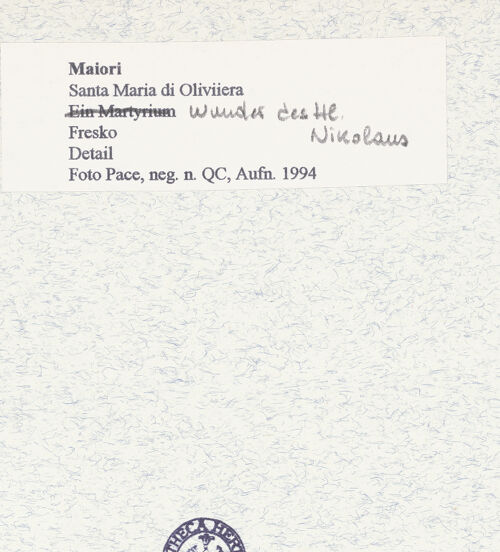 Maiori
Santa Maria di Oliviiera
Ein Martyrium Wunder des Hl.
Nikolaus
Fresko
Detail
Foto Pace, neg. n. QC, Aufn. 1994
THECA HER